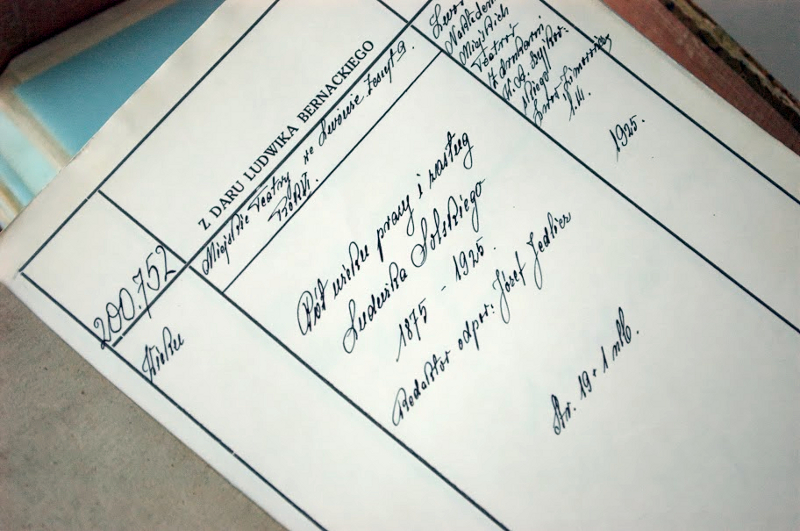 Z DARU LUDWIKA BERNACKIEGO
Miejskie Teatry we Lwowie Zeszyt 9.
Rok VI.
200.752
Wieku
Pół wieku pracy i zasług
Ludwika Solskiego
1875 - 1925.
Redaktor odpow: Józef Jedlicz
Str. 19 + 1 nlb.
Lwów
Nakładem
Miejskich
Teatrów
Z drukarni
1925.